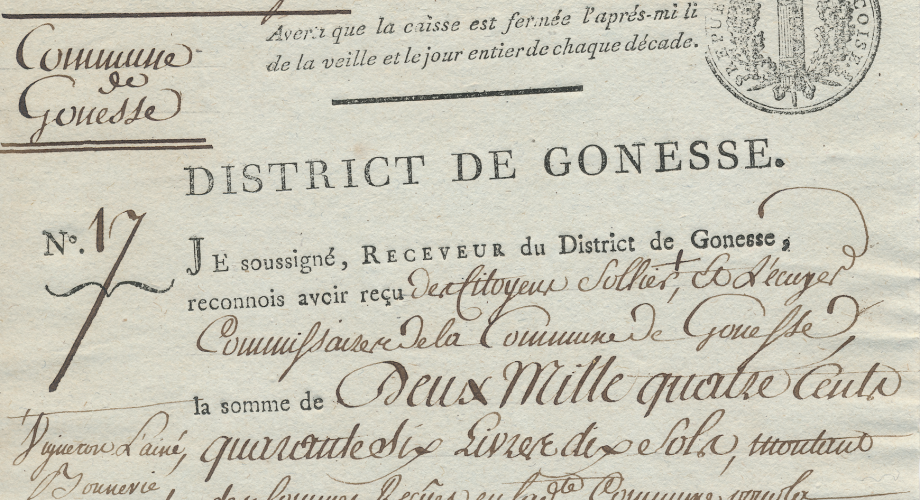 Averti que la caisse est fermée l'aprés-mi li
de la veille et le jour entier de chaque décade.
Commune
de
Gonesse
DISTRICT DE GONESSE.
N°. 17
JE soussigné, RECEVEUR du District de Gonesse,
reconnois avoir reçu des Citoyens Sollier, Et Lécuyer
Commissaires de la Commune de Gonesse,
la somme de Deux Mille quatre Cents
quarante Six Livres dix Sols, montant
Vigneron L'ainé,
Bonnerie,
des sommes Reçües en lad.te Commune